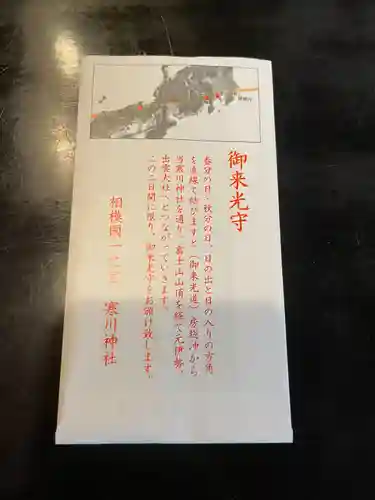 御来光守
春分の日・秋分の日、日の出と日の入りの方角
を直線で結びますと（御来光道）房総沖から
当寒川神社を通り、富士山山頂を経て元伊勢、
出雲大社へとつながっていきます。
この二日間に限り、御来光守をお頒け致します。
相模國一之宮　寒川神社